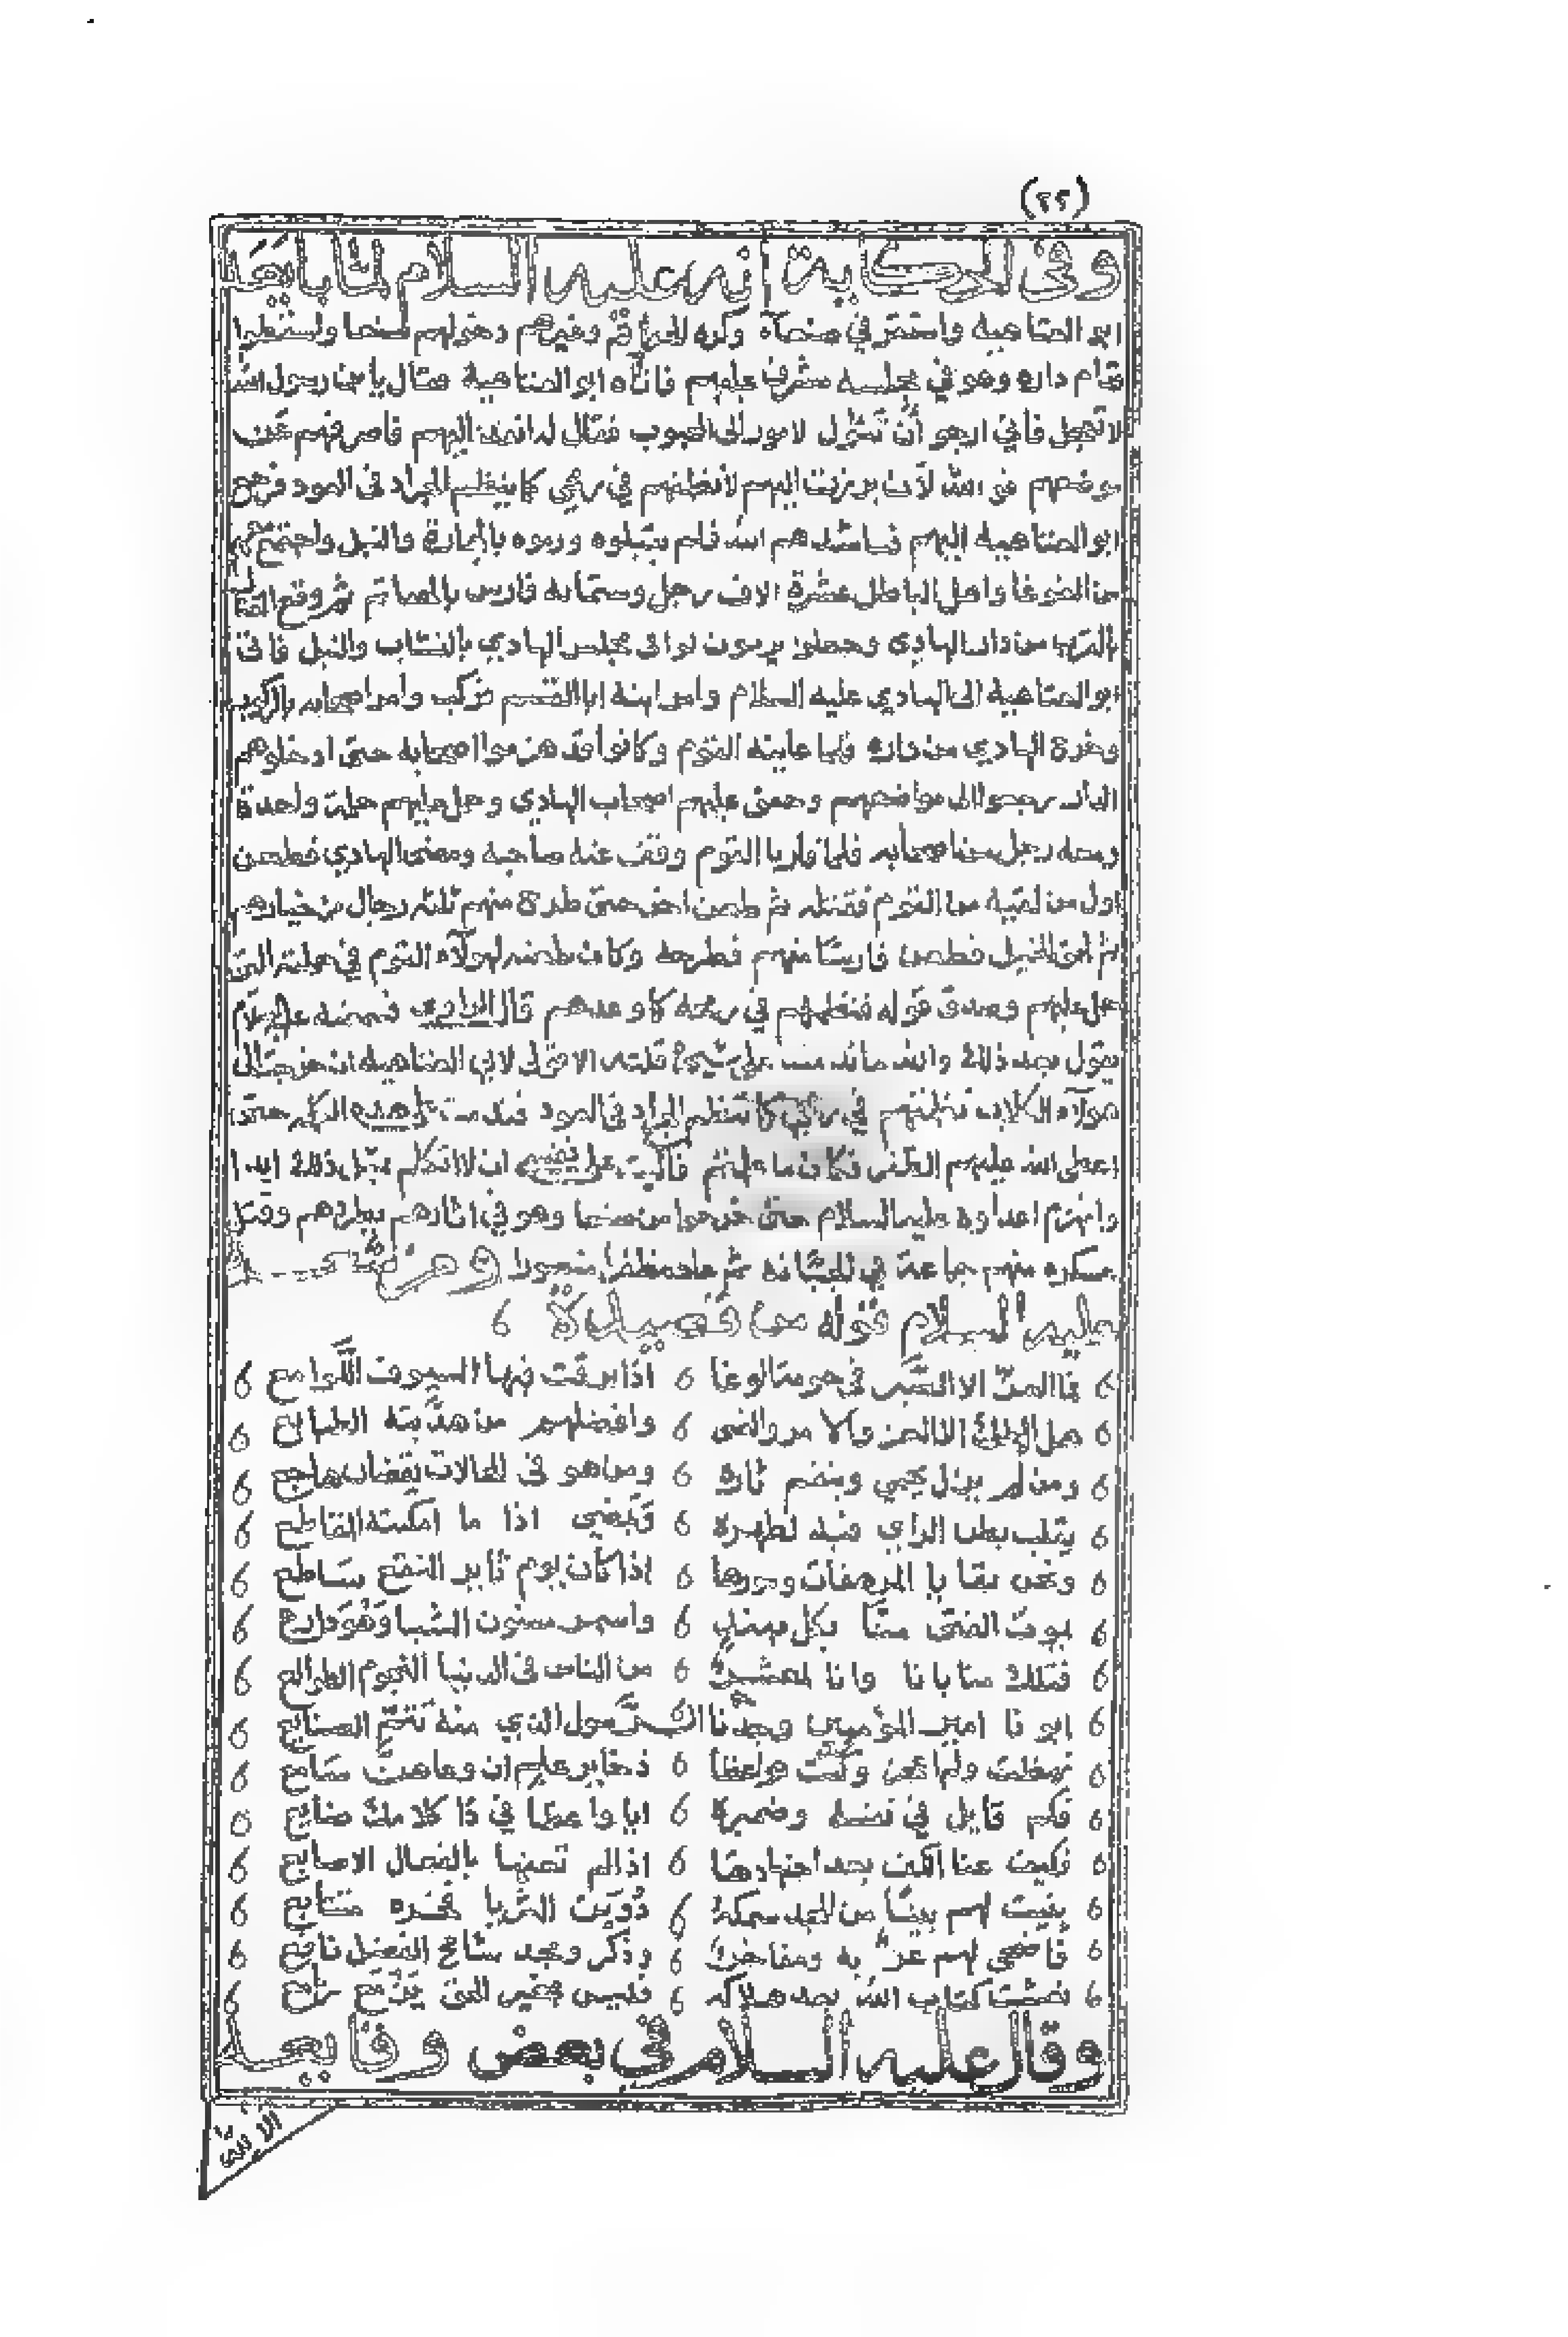 (٢٢)
وفي الحكاية انه عليه السلام لما بايعه
ابو العتاهية واستقر في صنعاء وكره الجفاتم وغيرهم دخولهم صنعا
قدام داره وهو في مجلسه مشرف عليهم فاتاه ابو العتاهية فقال يا ابن رسول الله
لا تعجل فاني ارجو أن تئول الامور الى المحبوب فقال له انفذ اليهم فاصرفهم عن
موضعهم فو الله لان برزت اليهم لانظمنهم في رمحي كما ينظم الجراد في العود فخرج
ابو العتاهية اليهم فناشدهم الله فلم يقبلوه ورموه بالحجارة والنبل واجتمع
من الغوغا واهل الباطل عشرة الاف رجل وستمائة فارس
بالقرب من دار الهادي وجعلوا يرمون الى مجلس الهادي بالنشاب والنبل فاتى
ابو العتاهية الى الهادي عليه السلام وامر ابنه ابا القسم فركب وامر اصحابه بالركوب
وخرج الهادي من داره فلما عاينه القوم وكانوا قد هزموا اصحابه حتى ادخلوهم
الدار رجعوا الى مواضعهم وحمى عليهم اصحاب الهادي وحمل عليهم حملة واحدة
ومعه رجل من اصحابه فلما قاربا القوم وقف عنه صاحبه ومضى الهادي فطعن
اول من لقيه من القوم فقتله ثم طعن اخر حتى طرح منهم ثلثه رجال من خيارهم
ثم اتى الخيل فطعن فارسا منهم فطرحه وكان طعنه لهولاء القوم في حملته التي
حمل عليهم وصدق قوله فنظمهم في رمحه كما وعدهم قال الراوي فسمعته عليه السلام
يقول بعد ذلك والله ما ندمت على شيء قلته الا قولي لابي العتاهية
هولاء الكلاب نظمتهم في رمحي كما تنظم الجراد في العود فندمت على هذه الكلمة حتى
اعطى الله عليهم الظفر فكان ما علمتم فاليت على نفسي ان لا اتكلم بمثل ذلك ابدا
وانهزم اعداوه عليه السلام حتى خرجوا من صنعا وهو في اثارهم يطردهم وقتل
عسكره منهم جماعة في الجبانة ثم عاد مظفرا منصورا ومن شعره
عليه السلام قوله من قصيدة
فما العز الا الصبر في حومة الوغا اذا برقت فيها السيوف اللوامع
هل الملك الا العز والامر والغنى وافضلهم من هذبته الطبايع
ومن لم يزل يحمي وينقم ثاره ومن هو في الحالات يقظان هاجع
يقلب بطن الراي فيه لظهره ويمضي اذا ما امكنته المقاطع
ونحن بقايا المرهفات وسورها اذا كان يوم ثاير النقع ساطع
يموت الفتى منا بكل مهند واسمر مسنون الشبا وهو دارع
فتلك منايانا وانا لمعشر من الناس في الدنيا النجوم الطوالع
ابونا امير المؤمنين وجدنا الرسول الذي منه تتم الصنايع
فكم قايل في نفسه وضميره ايا واعظا في ذا كلامك ضائع
فكيف عنا الكف بعد اجتهادها اذا لم تعنها بالفعال الاصابع
بنيت لهم بيتا من المجد سمكه دوين الثريا فخره متتابع
فاضحى لهم عز به ومفاخر وذكر ومجد شامخ الفضل نافع
نعشت كتاب الله بعد هلاكه فليس بغير الحق يقرع سامع
وقال عليه السلام في بعض وقايعه